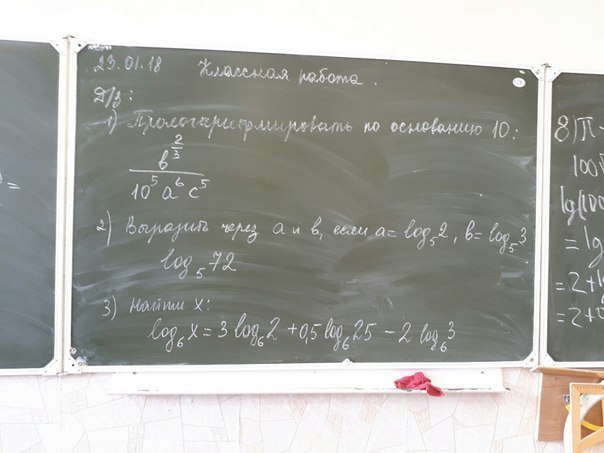 23.01.18 Классная работа.
Д/з:
1) Прологарифмировать по основанию 10:
в^(2/3)
10^5 a^6 c^5
2) Выразить через a и в, если a = log_5 2, в = log_5 3
log_5 72
3) Найти x:
log_6 x = 3 log_6 2 + 0,5 log_6 25 - 2 log_6 3
=
8) П-
100
lg(100
= lg
= 2 + lg
= 2 +